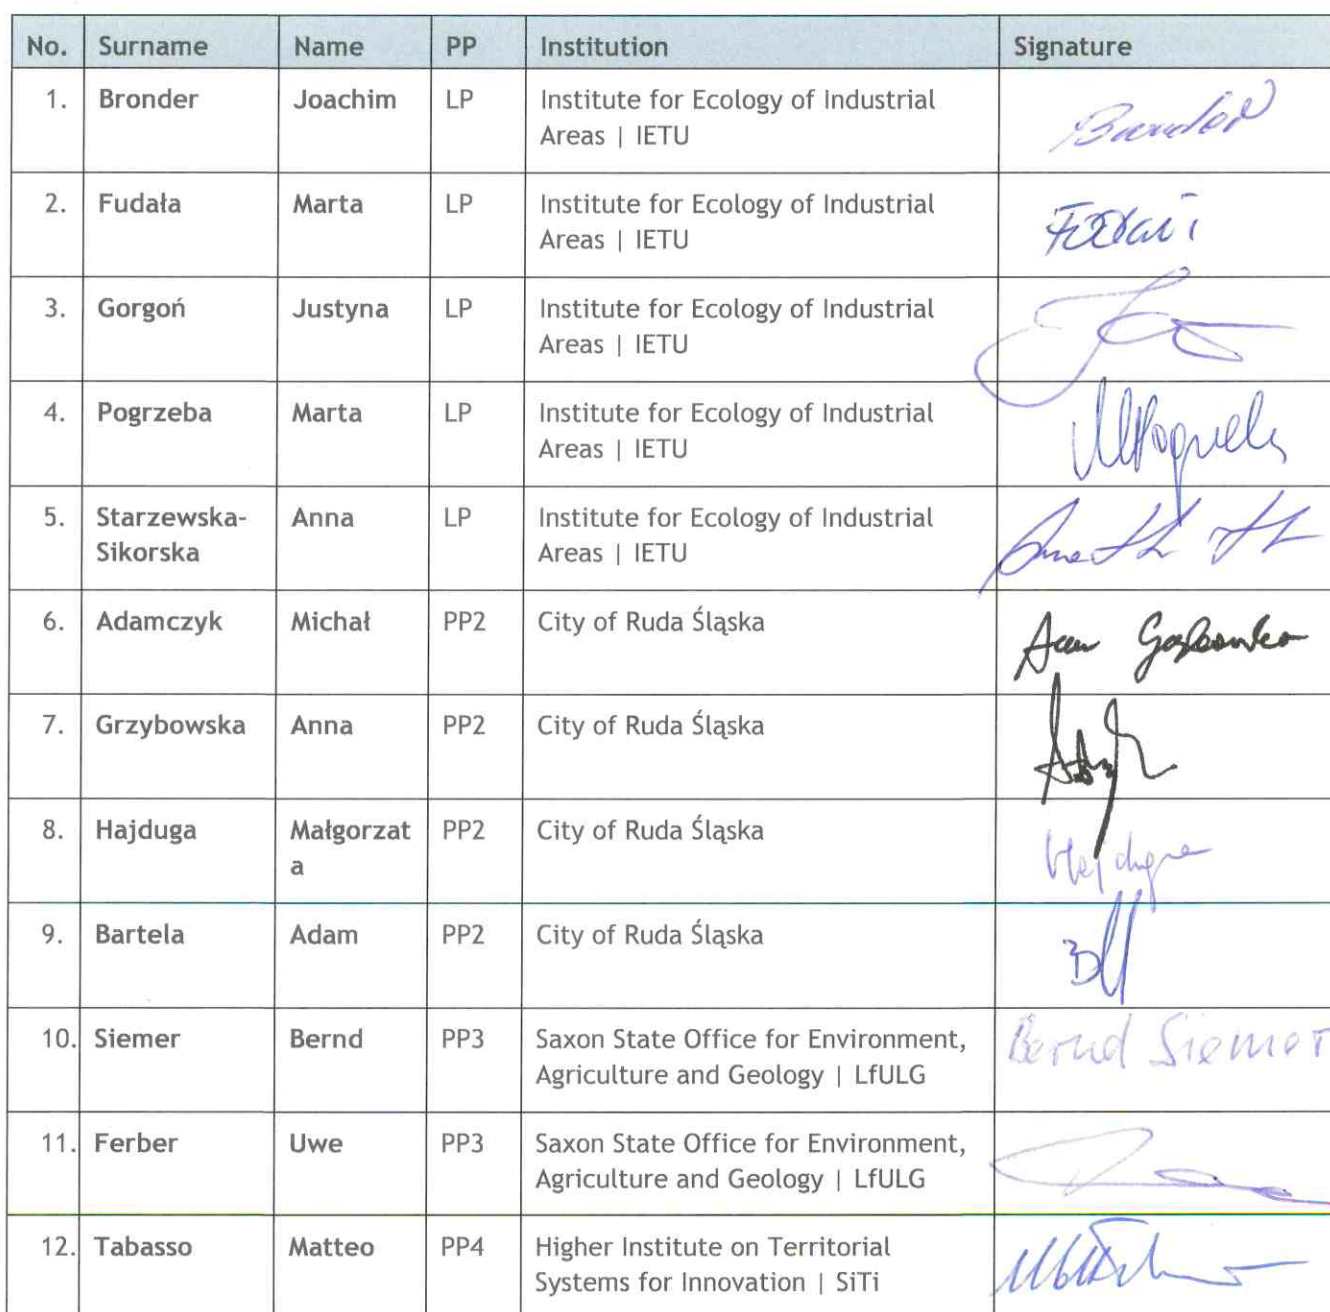 No. Surname Name PP Institution Signature
1. Bronder Joachim LP Institute for Ecology of Industrial
Areas | IETU
2. Fudała Marta LP Institute for Ecology of Industrial
Areas | IETU
3. Gorgoń Justyna LP Institute for Ecology of Industrial
Areas | IETU
4. Pogrzeba Marta LP Institute for Ecology of Industrial
Areas | IETU
5. Starzewska- Anna LP Institute for Ecology of Industrial
Sikorska Areas | IETU
6. Adamczyk Michał PP2 City of Ruda Śląska
7. Grzybowska Anna PP2 City of Ruda Śląska
8. Hajduga Małgorzat PP2 City of Ruda Śląska Hajduga
a
9. Bartela Adam PP2 City of Ruda Śląska
10. Siemer Bernd PP3 Saxon State Office for Environment, Bernd Siemer
Agriculture and Geology | LfULG
11. Ferber Uwe PP3 Saxon State Office for Environment,
Agriculture and Geology | LfULG
12. Tabasso Matteo PP4 Higher Institute on Territorial
Systems for Innovation | SiTi